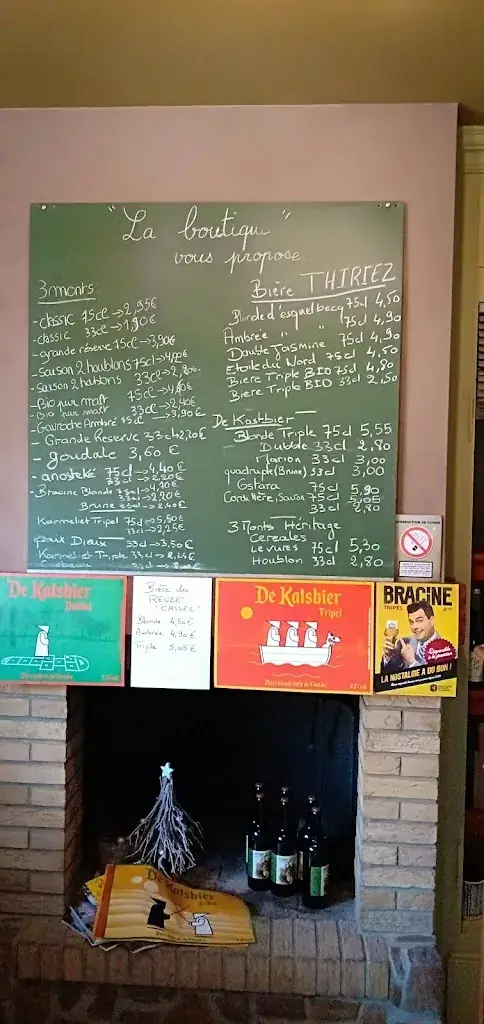 "La boutique"
vous propose
3 monts
- classic 75cl → 2,95€
- classic 33cl → 1,90€
- grande réserve 75cl → 3,90€
- Saison 2 houblons 75cl →
- Saison 2 houblons 33cl →
- Bio pur malt 75cl →
- Bio pur malt 33cl → 2,40€
- Gavroche Ambré 75cl → 3,90€
- Grande Reserve 33cl → 2,20€
- goudale 3,60€
- anosteké 75cl → 4,40€
33cl → 2,20€
- Bracine Blonde 75cl →
33cl → 2,20€
Brune 33cl → 2,40€
Karmeliet Tripel 75cl → 5,50€
33cl → 2,25€
paix Dieux 33cl → 3,50€
Karmeliet Triple 33cl →
33cl →
Bière THIRIEZ
Blonde d'esquelbecq 75cl 4,50
Ambrée " " 75cl 4,90
Double Jasmine 75cl 4,90
Etoile du Nord 75cl 4,50
Biere Triple BIO 75cl 4,80
Biere Triple BIO 33cl 2,50
De Kastbier
Blonde Triple 75cl 5,55
Dubble 33cl 2,80
Marion 33cl 3,00
quadruple (Brune) 33cl 3,00
Ostara 75cl 5,90
75cl
33cl 2,80
3 Monts Héritage
Cereales
Levures 75cl 5,30
Houblon 33cl 2,80
De Katsbier
Dubbel
Bière du
REUZE
"CASSEL"
Blonde 4,50€
Ambrée 4,90€
Triple 5,05€
De Katsbier
Tripel
BRACINE
TRIPEL
LA NOSTALGIE A DU BON !
De Katsbier